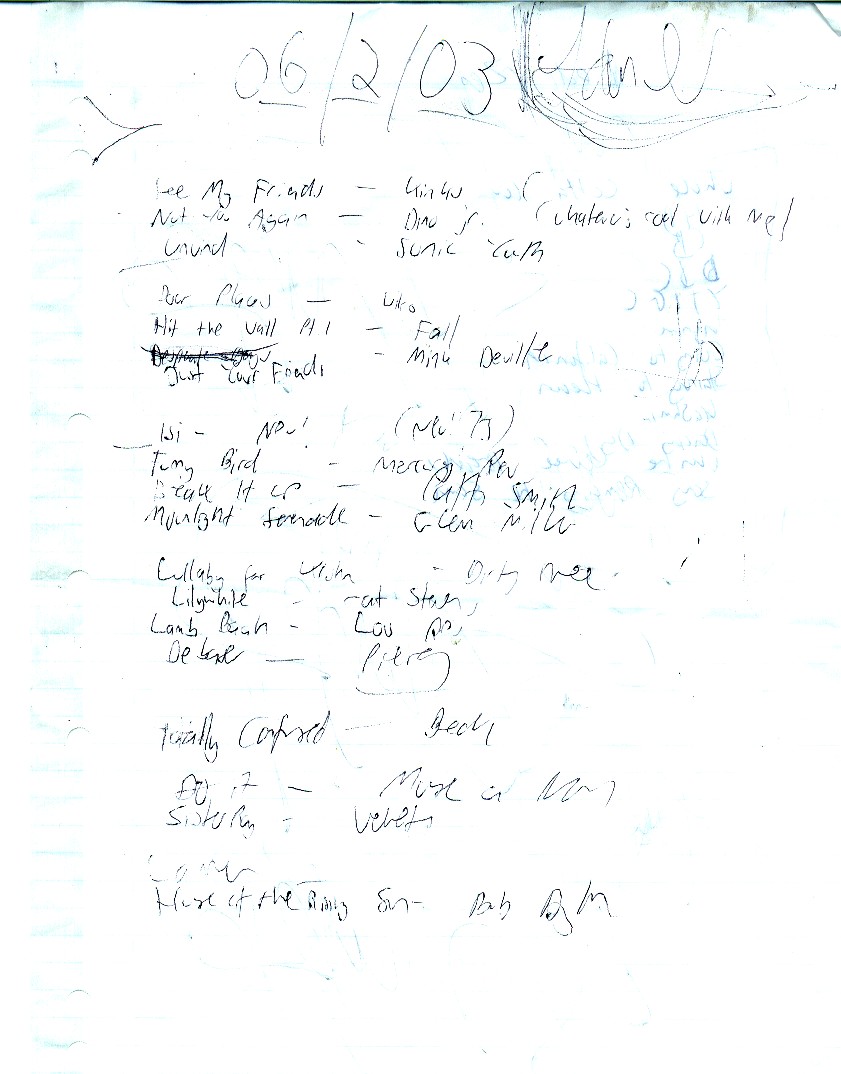 06/2/03
See My Friends - Kinks
Not You Again - Dino jr. (whatever's cool with me)
Unwind - Sonic Youth
Poor Places - Wilco
Hit the Wall Pt 1 - Fall
Just Your Friends - Mink Deville
Isi - Neu! (Neu! 75)
Tonite Bird - Mercury Rev
Break It Up - Patti Smith
Moonlight Serenade - Glen Miller
Lullaby for - Dirty Three
Lilywhite - Cat Stevens
Lou
Debaser - Pixies
Totally Confused - Beck
- Mouse on Mars
Sister Ray - Velvets
Cover
House of the Rising Sun - Bob Dylan